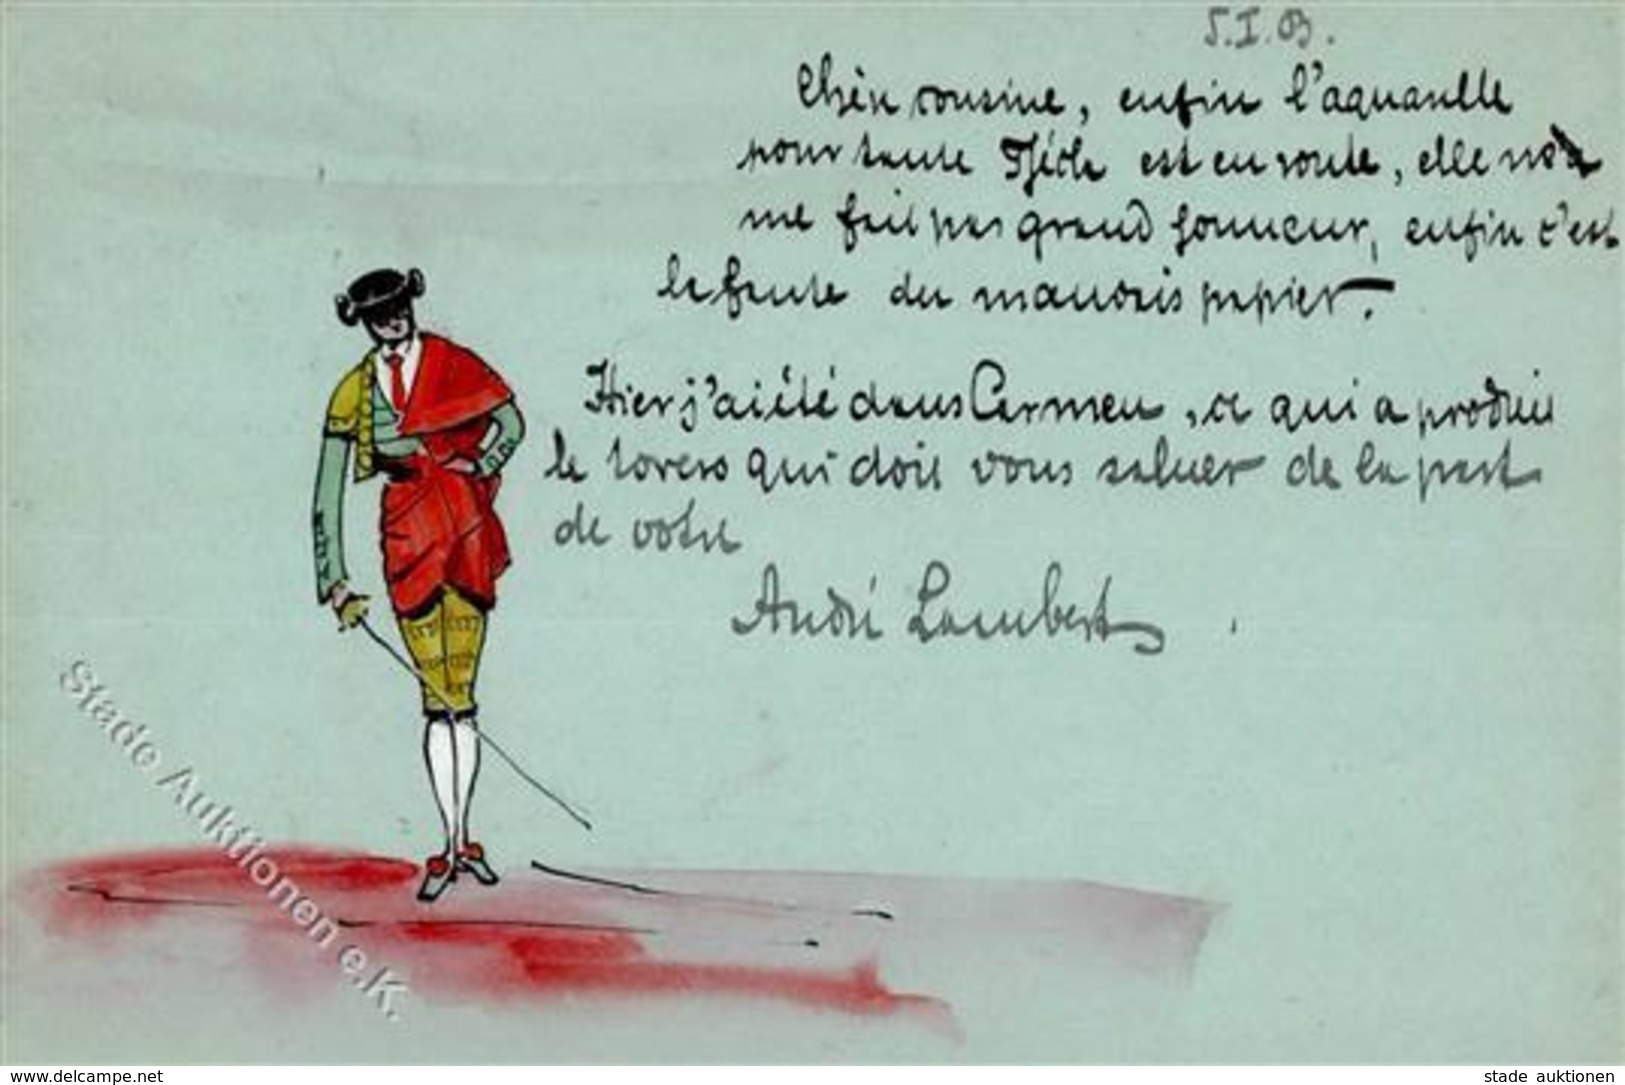 5.I.03.
Chère cousine, enfin l'aquarelle
pour tante est en route, elle
me fait pas grand honneur, enfin c'est
la faute du mauvais papier.
Hier j'ai été dans Carmen, ce qui a produit
le torero qui doit vous saluer de la part
de votre
André Lambert
Stade Auktionen e.K.
www.delcampe.net
stade auktionen